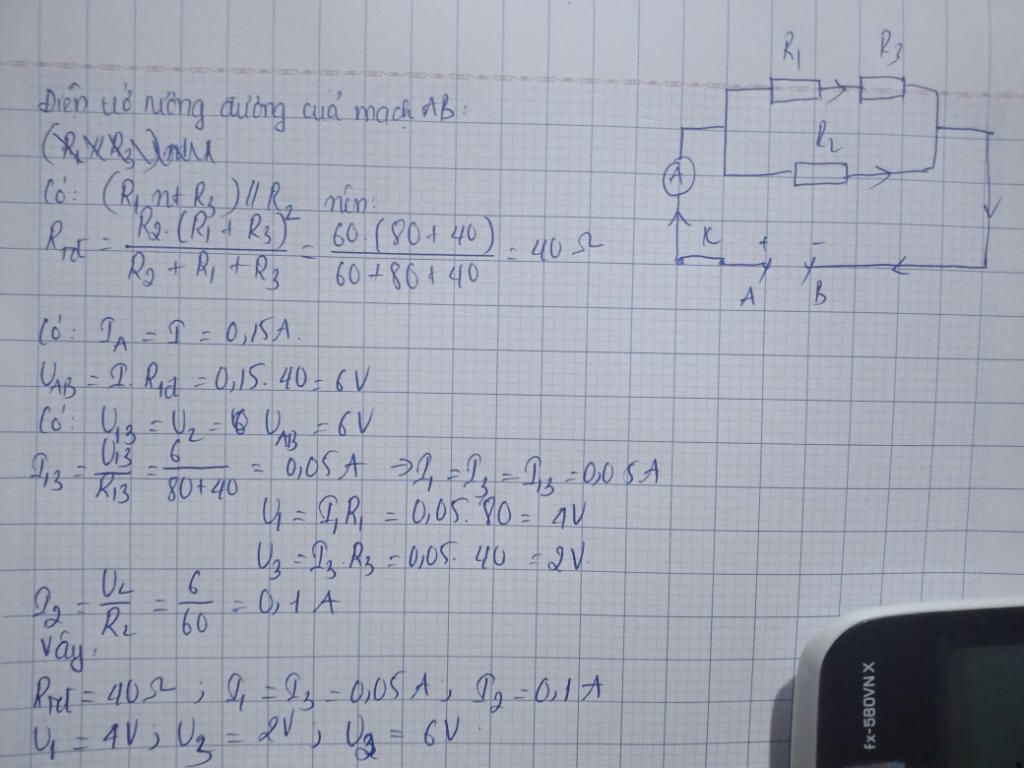 Điện trở tương đương của mạch AB:
Có: (R1 nt R3) // R2 nên:
Rtđ = R2.(R1 + R3) / R2 + R1 + R3 = 60.(80 + 40) / 60 + 80 + 40 = 40 Ω
Có: IA = I = 0,15A.
UAB = I.Rtđ = 0,15.40 = 6V
Có: U13 = U2 = UAB = 6V
I13 = U13 / R13 = 6 / 80+40 = 0,05A ⇒ I1 = I3 = I13 = 0,05A
U1 = I1R1 = 0,05.80 = 4V
U3 = I3.R3 = 0,05.40 = 2V.
I2 = U2 / R2 = 6 / 60 = 0,1A
Vậy:
Rtđ = 40Ω ; I1 = I3 = 0,05A ; I2 = 0,1A
U1 = 4V ; U3 = 2V ; U2 = 6V.
R1 R3
R2
A
K + -
A B
fx-580VN X